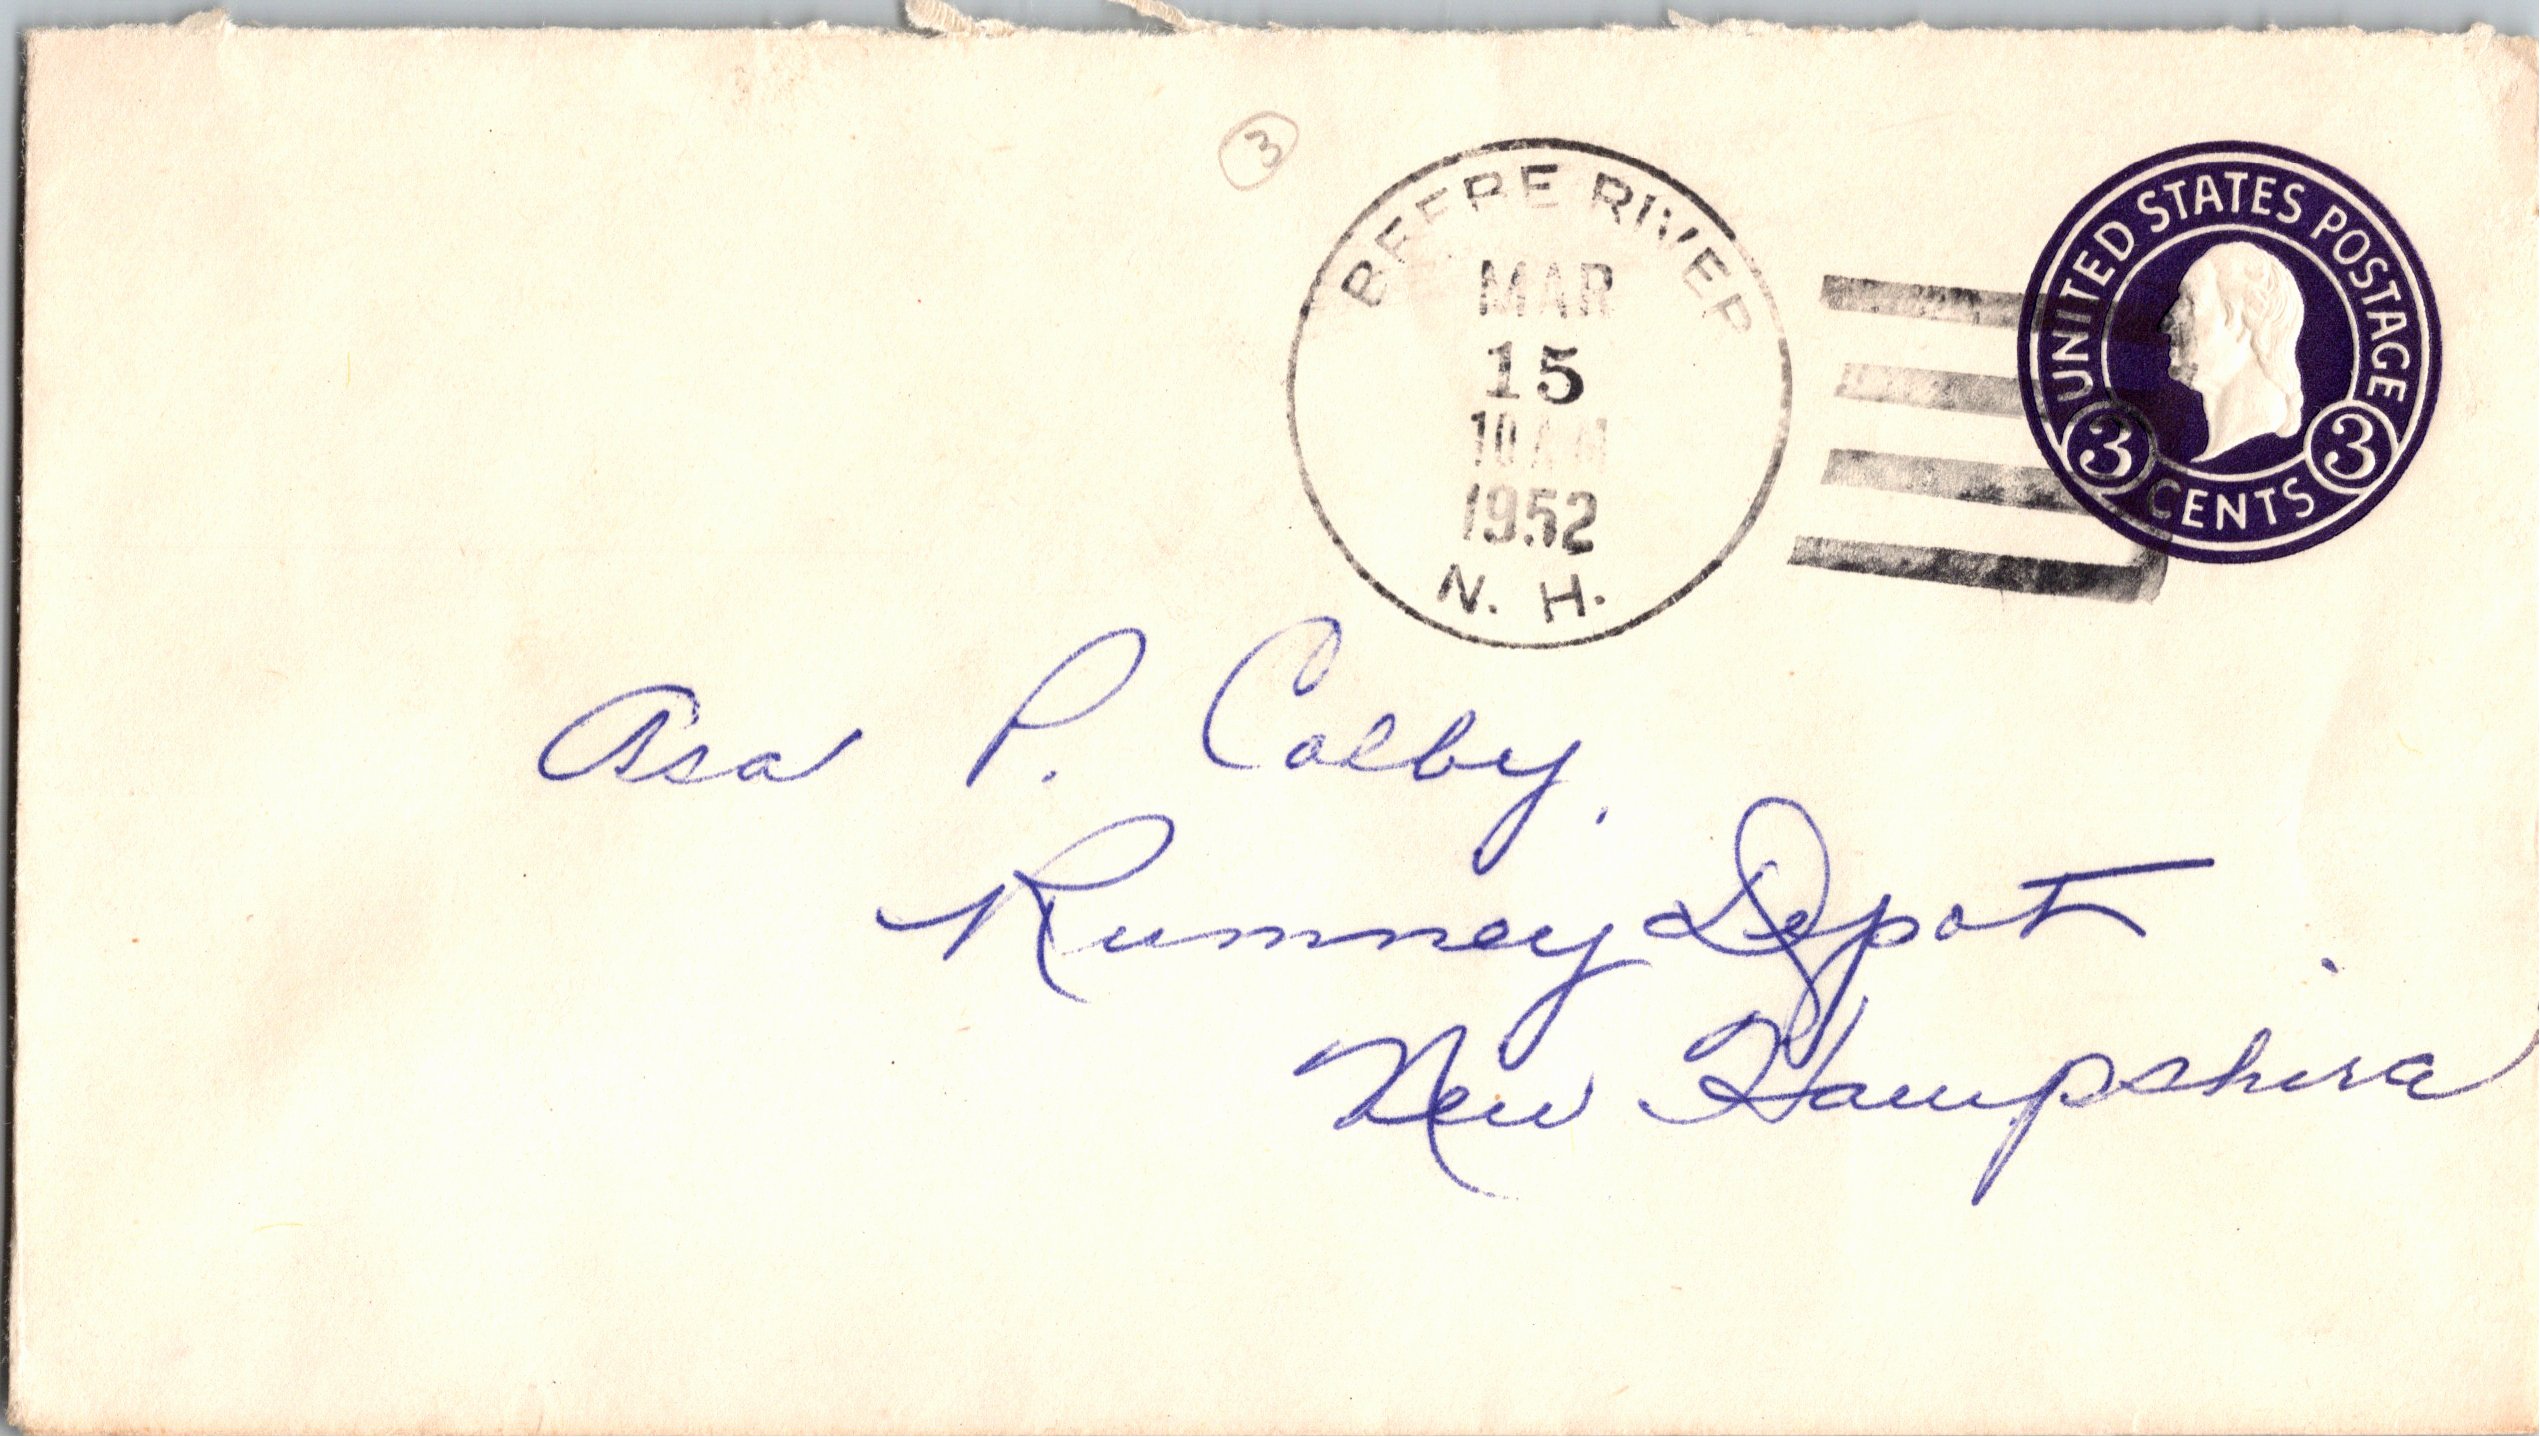 3
BEEBE RIVER
MAR
15
10 AM
1952
N. H.
UNITED STATES POSTAGE
3 3
CENTS
Asa P. Colby,
Rumney Depot
New Hampshire.